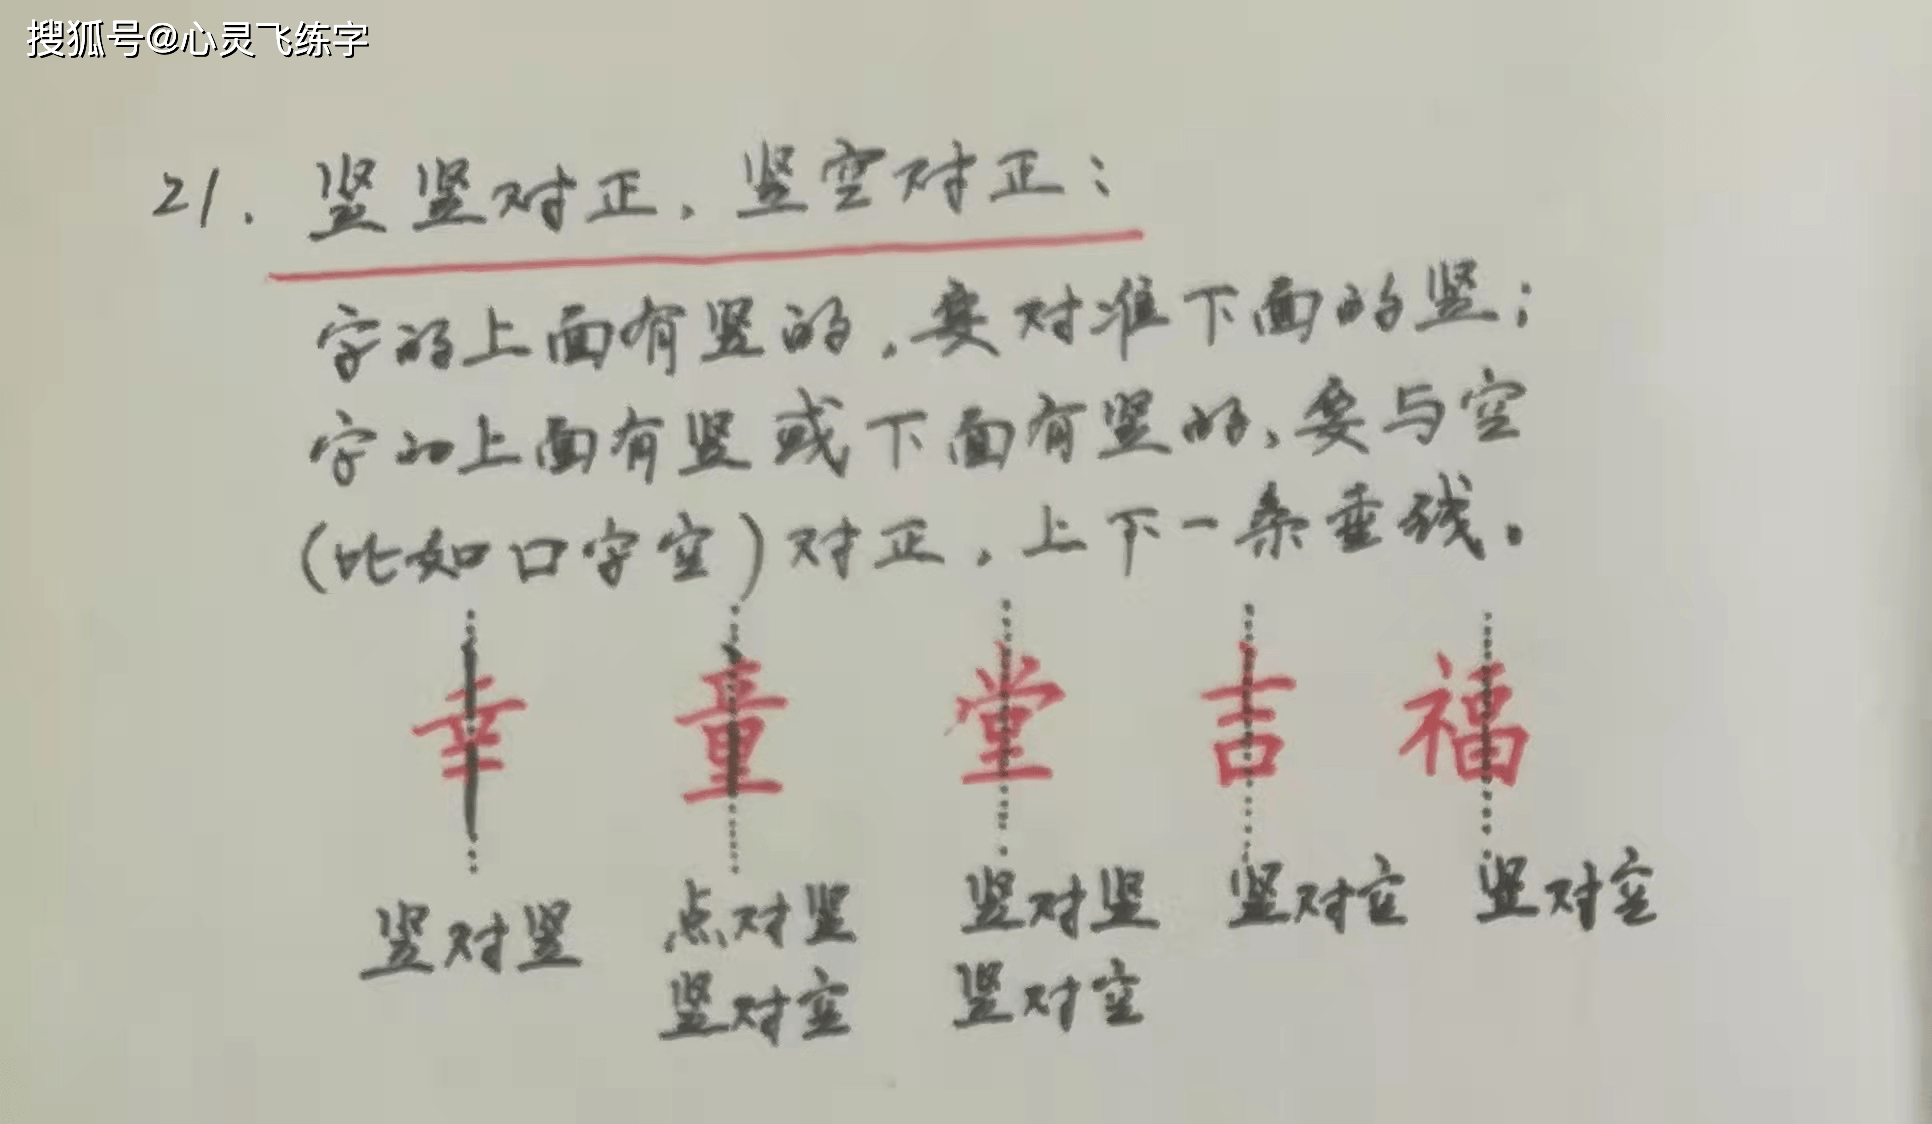 搜狐号@心灵飞练字
21. 竖竖对正，竖空对正：
字的上面有竖的，要对准下面的竖；
字的上面有竖或下面有竖的，要与空
(比如口字空)对正，上下一条垂线。
幸 童 堂 吉 福
竖对竖 点对竖 竖对竖 竖对空 竖对空
竖对空 竖对空